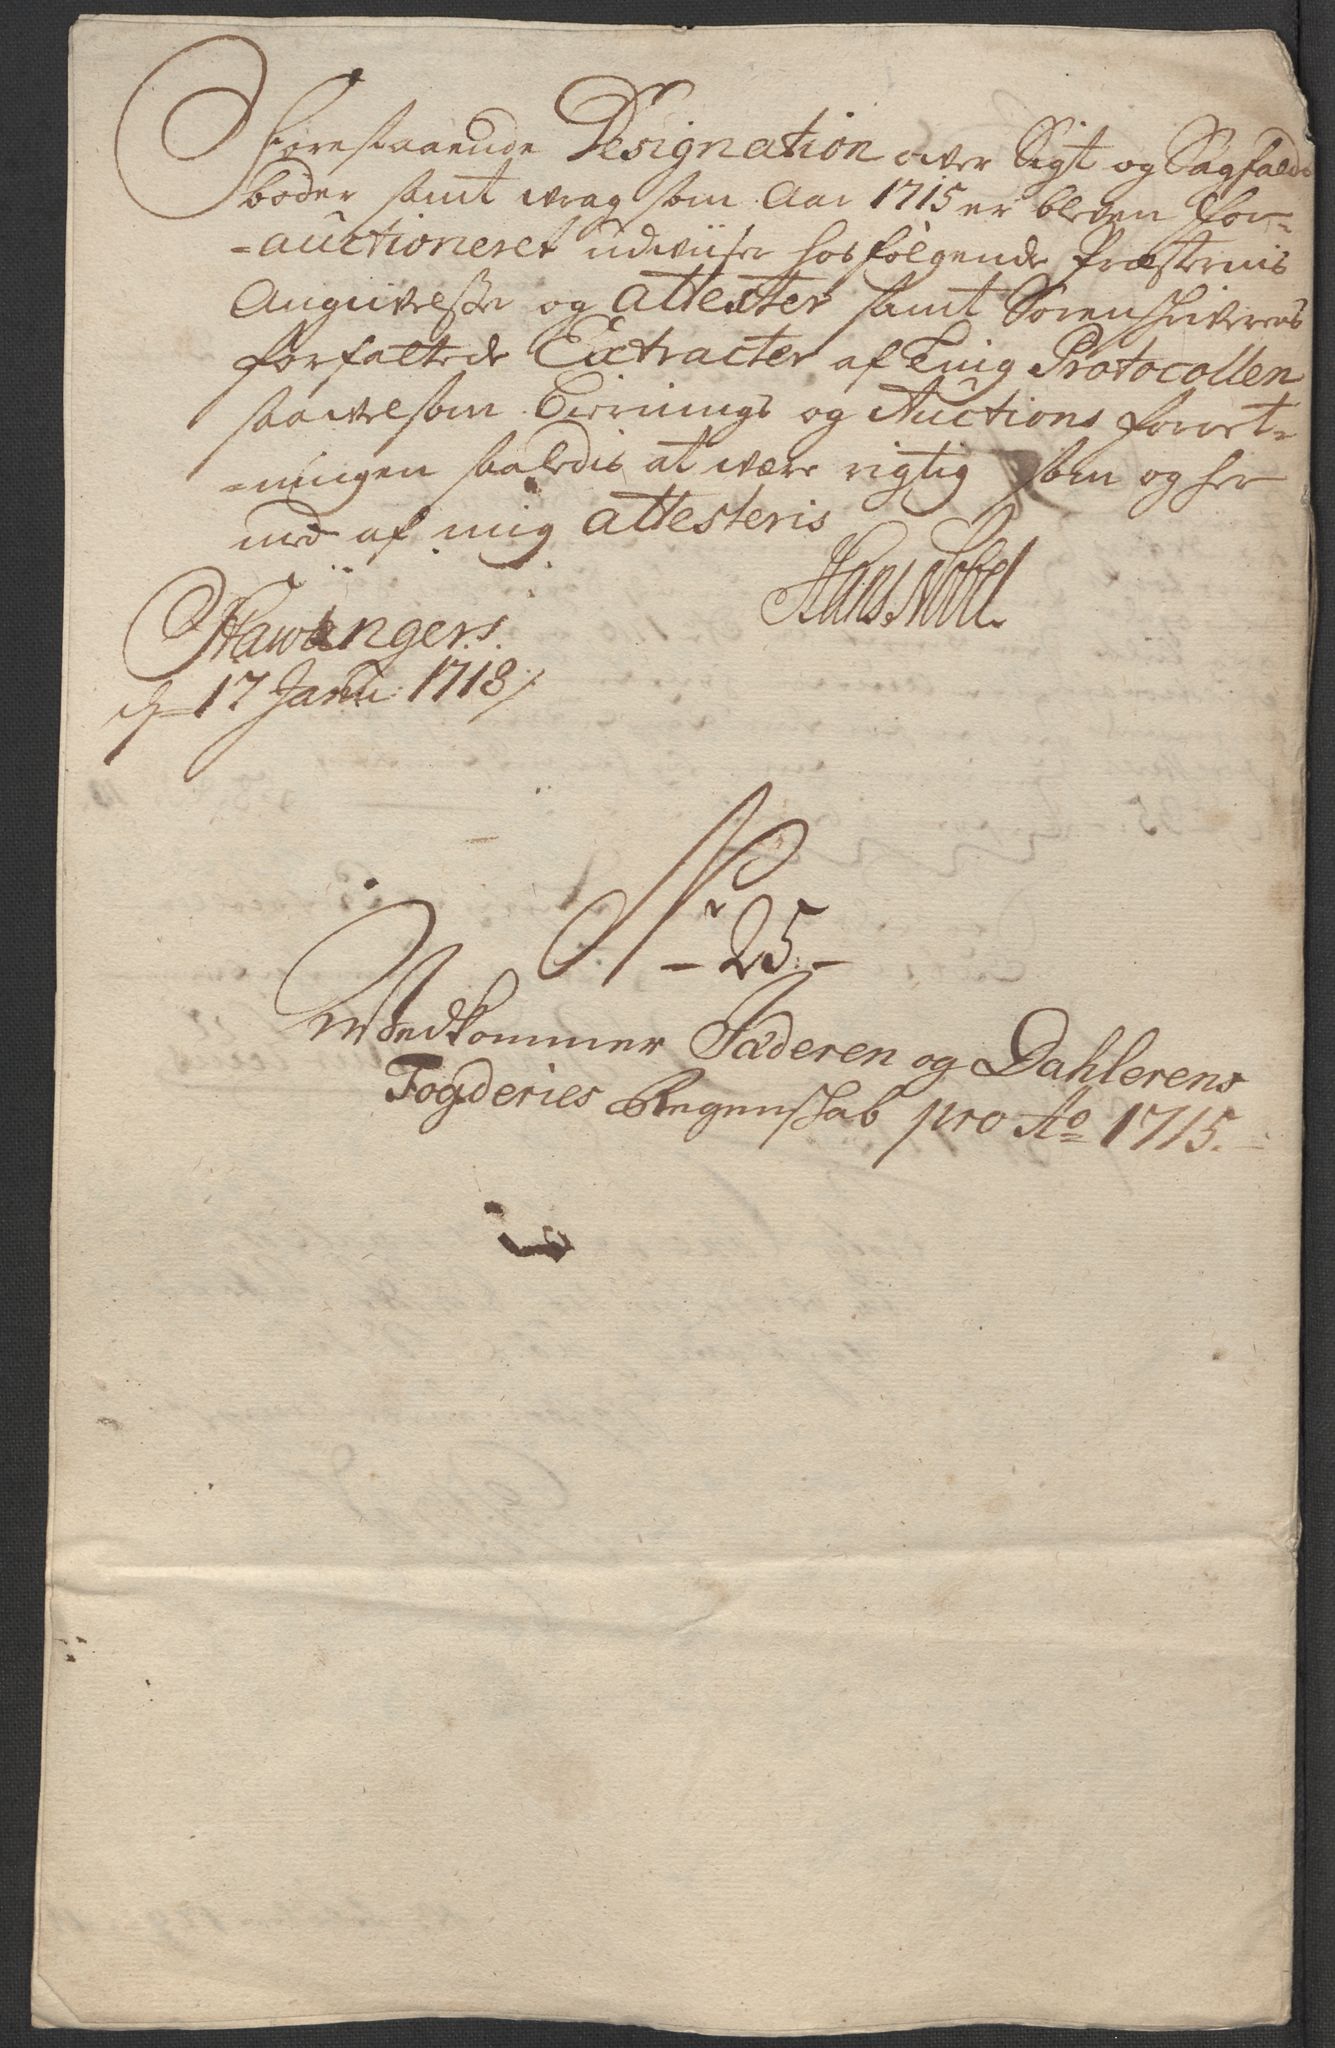 Forestaaende Designation over Sigt og Sagfalds
bøder samt vrag som Aar 1715 er bleven for-
-auctioneret udviiser hosfølgende Præsternis
Angivelser og attester samt Sorenskriverens
forfattede Extracter af Ting Protocollen
saavelsom Biernings og Auctions forret-
-ningen saaledis at være rigtig som og her
med af mig attesteris
Hans Nobel.
Stawanger.
d 17 Janu: 1718
Nr 25.
Vedkommer Jæderen og Dahlerens
Fogderies Regenskab pro Ao 1715.